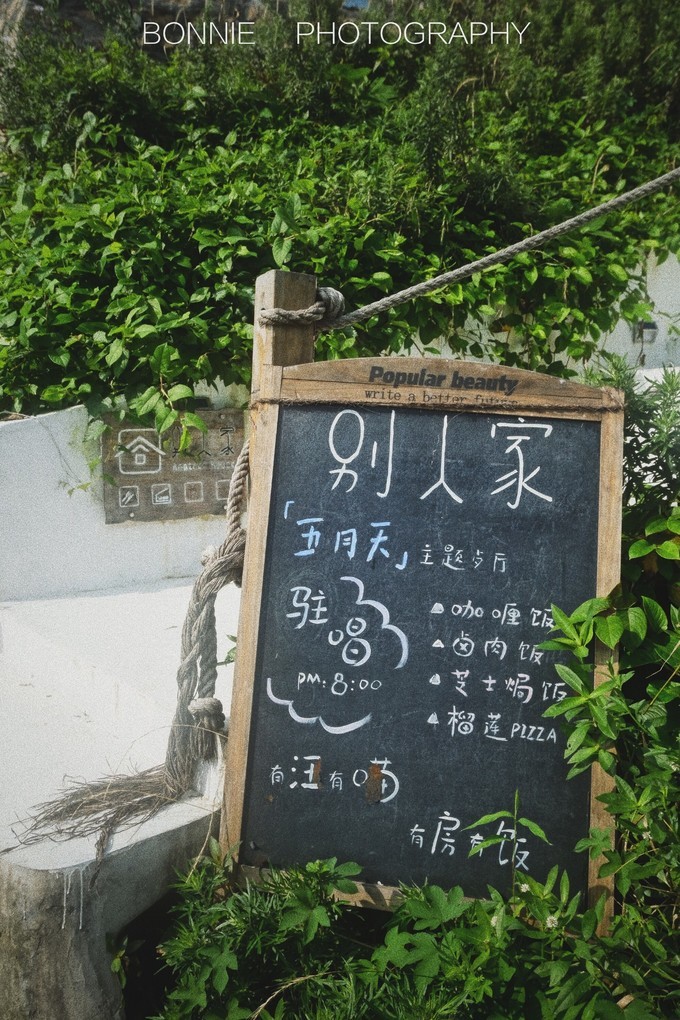 BONNIE PHOTOGRAPHY
Popular beauty
write a better future
别人家
「五月天」主题歺厅
驻唱
PM:8:00
咖喱饭
卤肉饭
芝士焗饭
榴莲PIZZA
有汪有喵
有房有饭